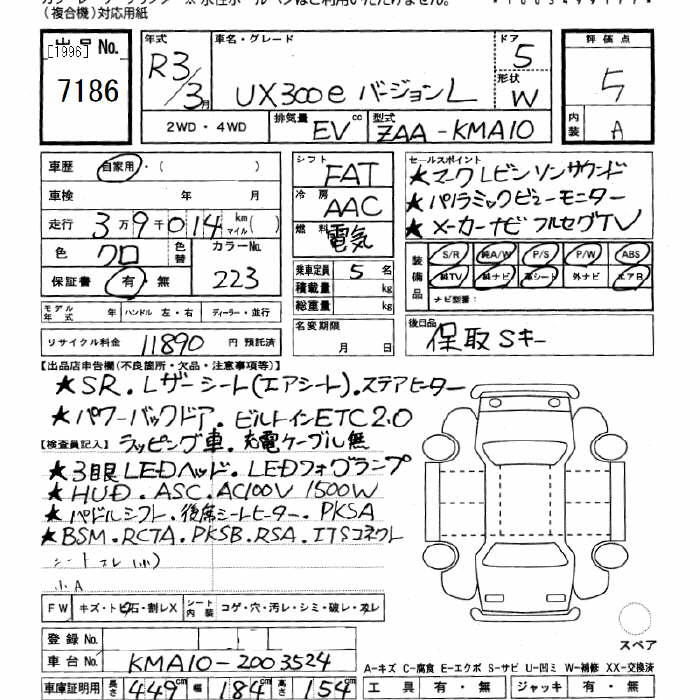 (複合機)対応用紙
出品No.
[1996]
7186
年式 車名・グレード ドア 評価点
R3/3月 UX300e バージョンL 5 5
形状 W
2WD・4WD 排気量 EV cc 型式 ZAA-KMA10 内装 A
車歴 自家用・( ) シフト FAT セールスポイント
★マークレビンソンサウンド
車検 年 月 冷房 AAC ★パノラミックビューモニター
走行 3万9千014 km マイル( ) 燃料 電気 ★メーカーナビ フルセグTV
色 クロ 色替 カラーNo. 223
装備品 S/R 純A/W P/S P/W ABS
純TV 純ナビ 革シート 外ナビ エアB
ナビ型番:
保証書 有・無
乗車定員 5名
積載量 kg
総重量 kg
モデル年式 年 ハンドル 左・右 ディーラー・並行
名変期限 月 日
後日品 保取Sキー
リサイクル料金 11890 円 預託済
【出品店申告欄(不良箇所・欠品・注意事項等)】
★SR.レザーシート(エアシート).ステアヒーター
★パワーバックドア.ビルトインETC2.0
【検査員記入】ラッピング車.充電ケーブル無
★3眼LEDヘッド.LEDフォグランプ
★HUD.ASC.AC100V 1500W
★パドルシフト.後席シートヒーター.PKSA
★BSM.RCTA.PKSB.RSA.ITSコネクト
シートスレ(小)
小A
FW キズ・トビ石・割レX シート内装 コゲ・穴・汚レ・シミ・破レ・スレ
スペア
登録No.
車台No. KMA10-2003524
A-キズ C-腐食 E-エクボ S-サビ U-凹ミ W-補修 XX-交換済
車庫証明用 長さ 449cm 幅 184cm 高さ 154cm 工具 有・無 ジャッキ 有・無